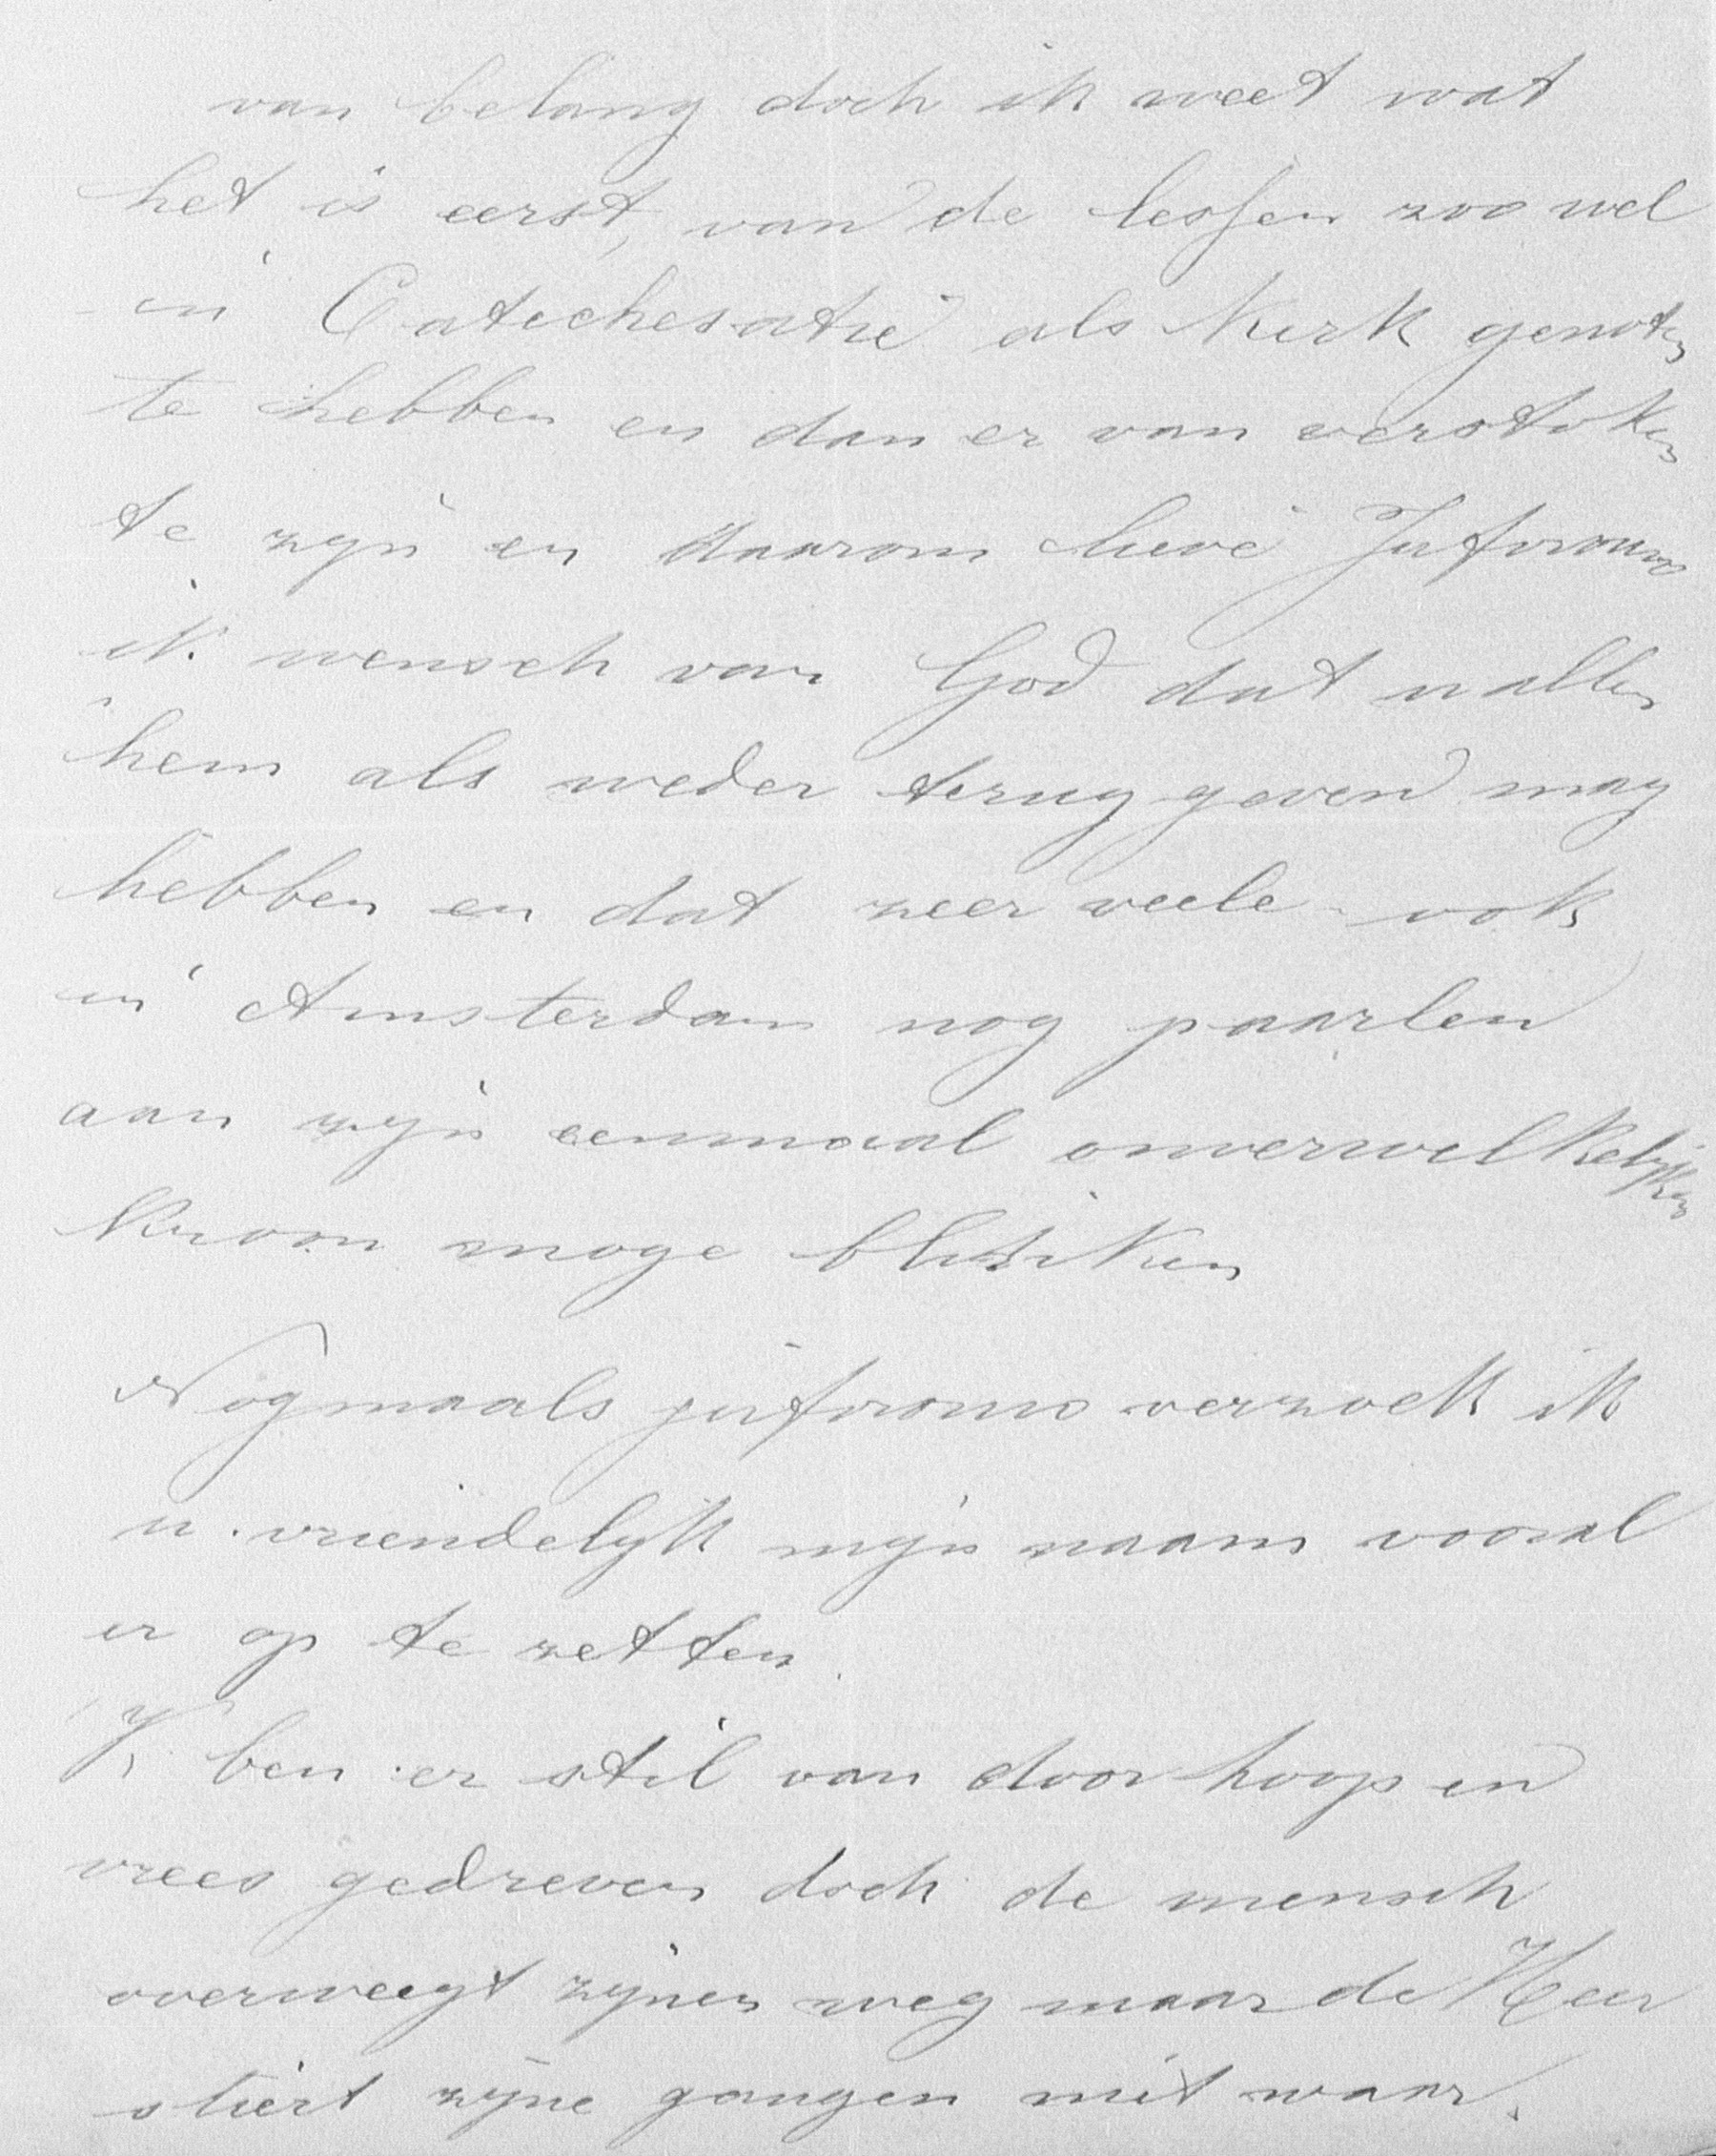 van belang doch ik weet wat
het is eerst, van de lessen zoo wel
in Catechesatie als Kerk genoten
te hebben en dan er van verstoken
te zijn en daarom lieve Jufvrouw
ik wensch van God dat u allen
hem als weder terug geven mag
hebben en dat zeer veele ook
in Amsterdam nog paarlen
aan zijn eenmaal onverwelkelijken
Kroon moge blinken
Nogmaals jufvrouw verzoek ik
u vriendelyk mijn naam vooral
er op te zetten.
Ik ben er stil van door hoop en
vrees gedreven doch de mensch
overweegt zijnen weg maar de Heer
stiert zijne gangen niet waar.